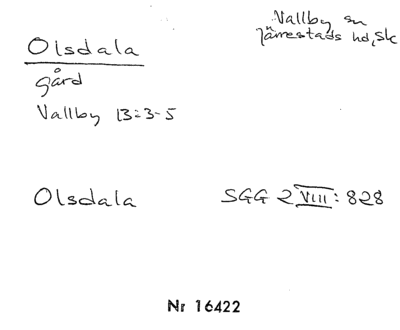 Olsdala
gård
Vallby 13:3-5
Vallby sn
Järrestads hd, Sk
Olsdala
SGG 2 VIII: 828
Nr 16422